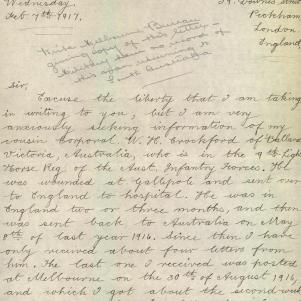 Wednesday
Feb 7th 1917.
Peckham
London
England
Write Melbourne Bureau
giving copy of this letter -
no record of
this man returning to
South Australia
Sir,
Excuse the liberty that I am taking
in writing to you, but I am very
anxiously seeking information of my
cousin Corporal W. H. Crockford of Ballarat
Victoria, Australia, who is in the 9th Light
Horse Reg. of the Aust. Infantry Forces. He
was wounded at Gallipoli and sent over
to England to hospital. He was in
England two or three months and then
was sent back to Australia on May
8th of last year 1916. since then I have
only received about four letters from
him. The last one I received was posted
at Melbourne on the 30th of August 1916,
and which I got about the second week